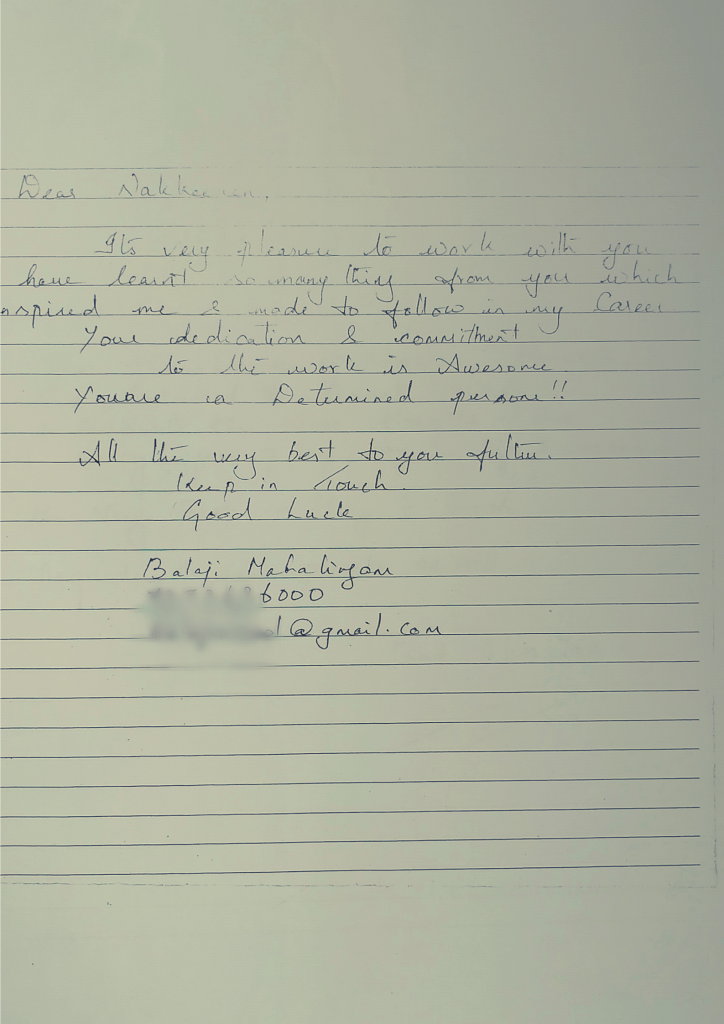 Dear
Its very pleasure to work with you
have learnt so many thing from you which
nspired me & made to follow in my Career.
Your dedication & commitment
to the work is Awesome.
You are a Determined person!!
All the very best to you
Keep in Touch.
Good Luck
Balaji Mahalingam
6000
l@gmail.com